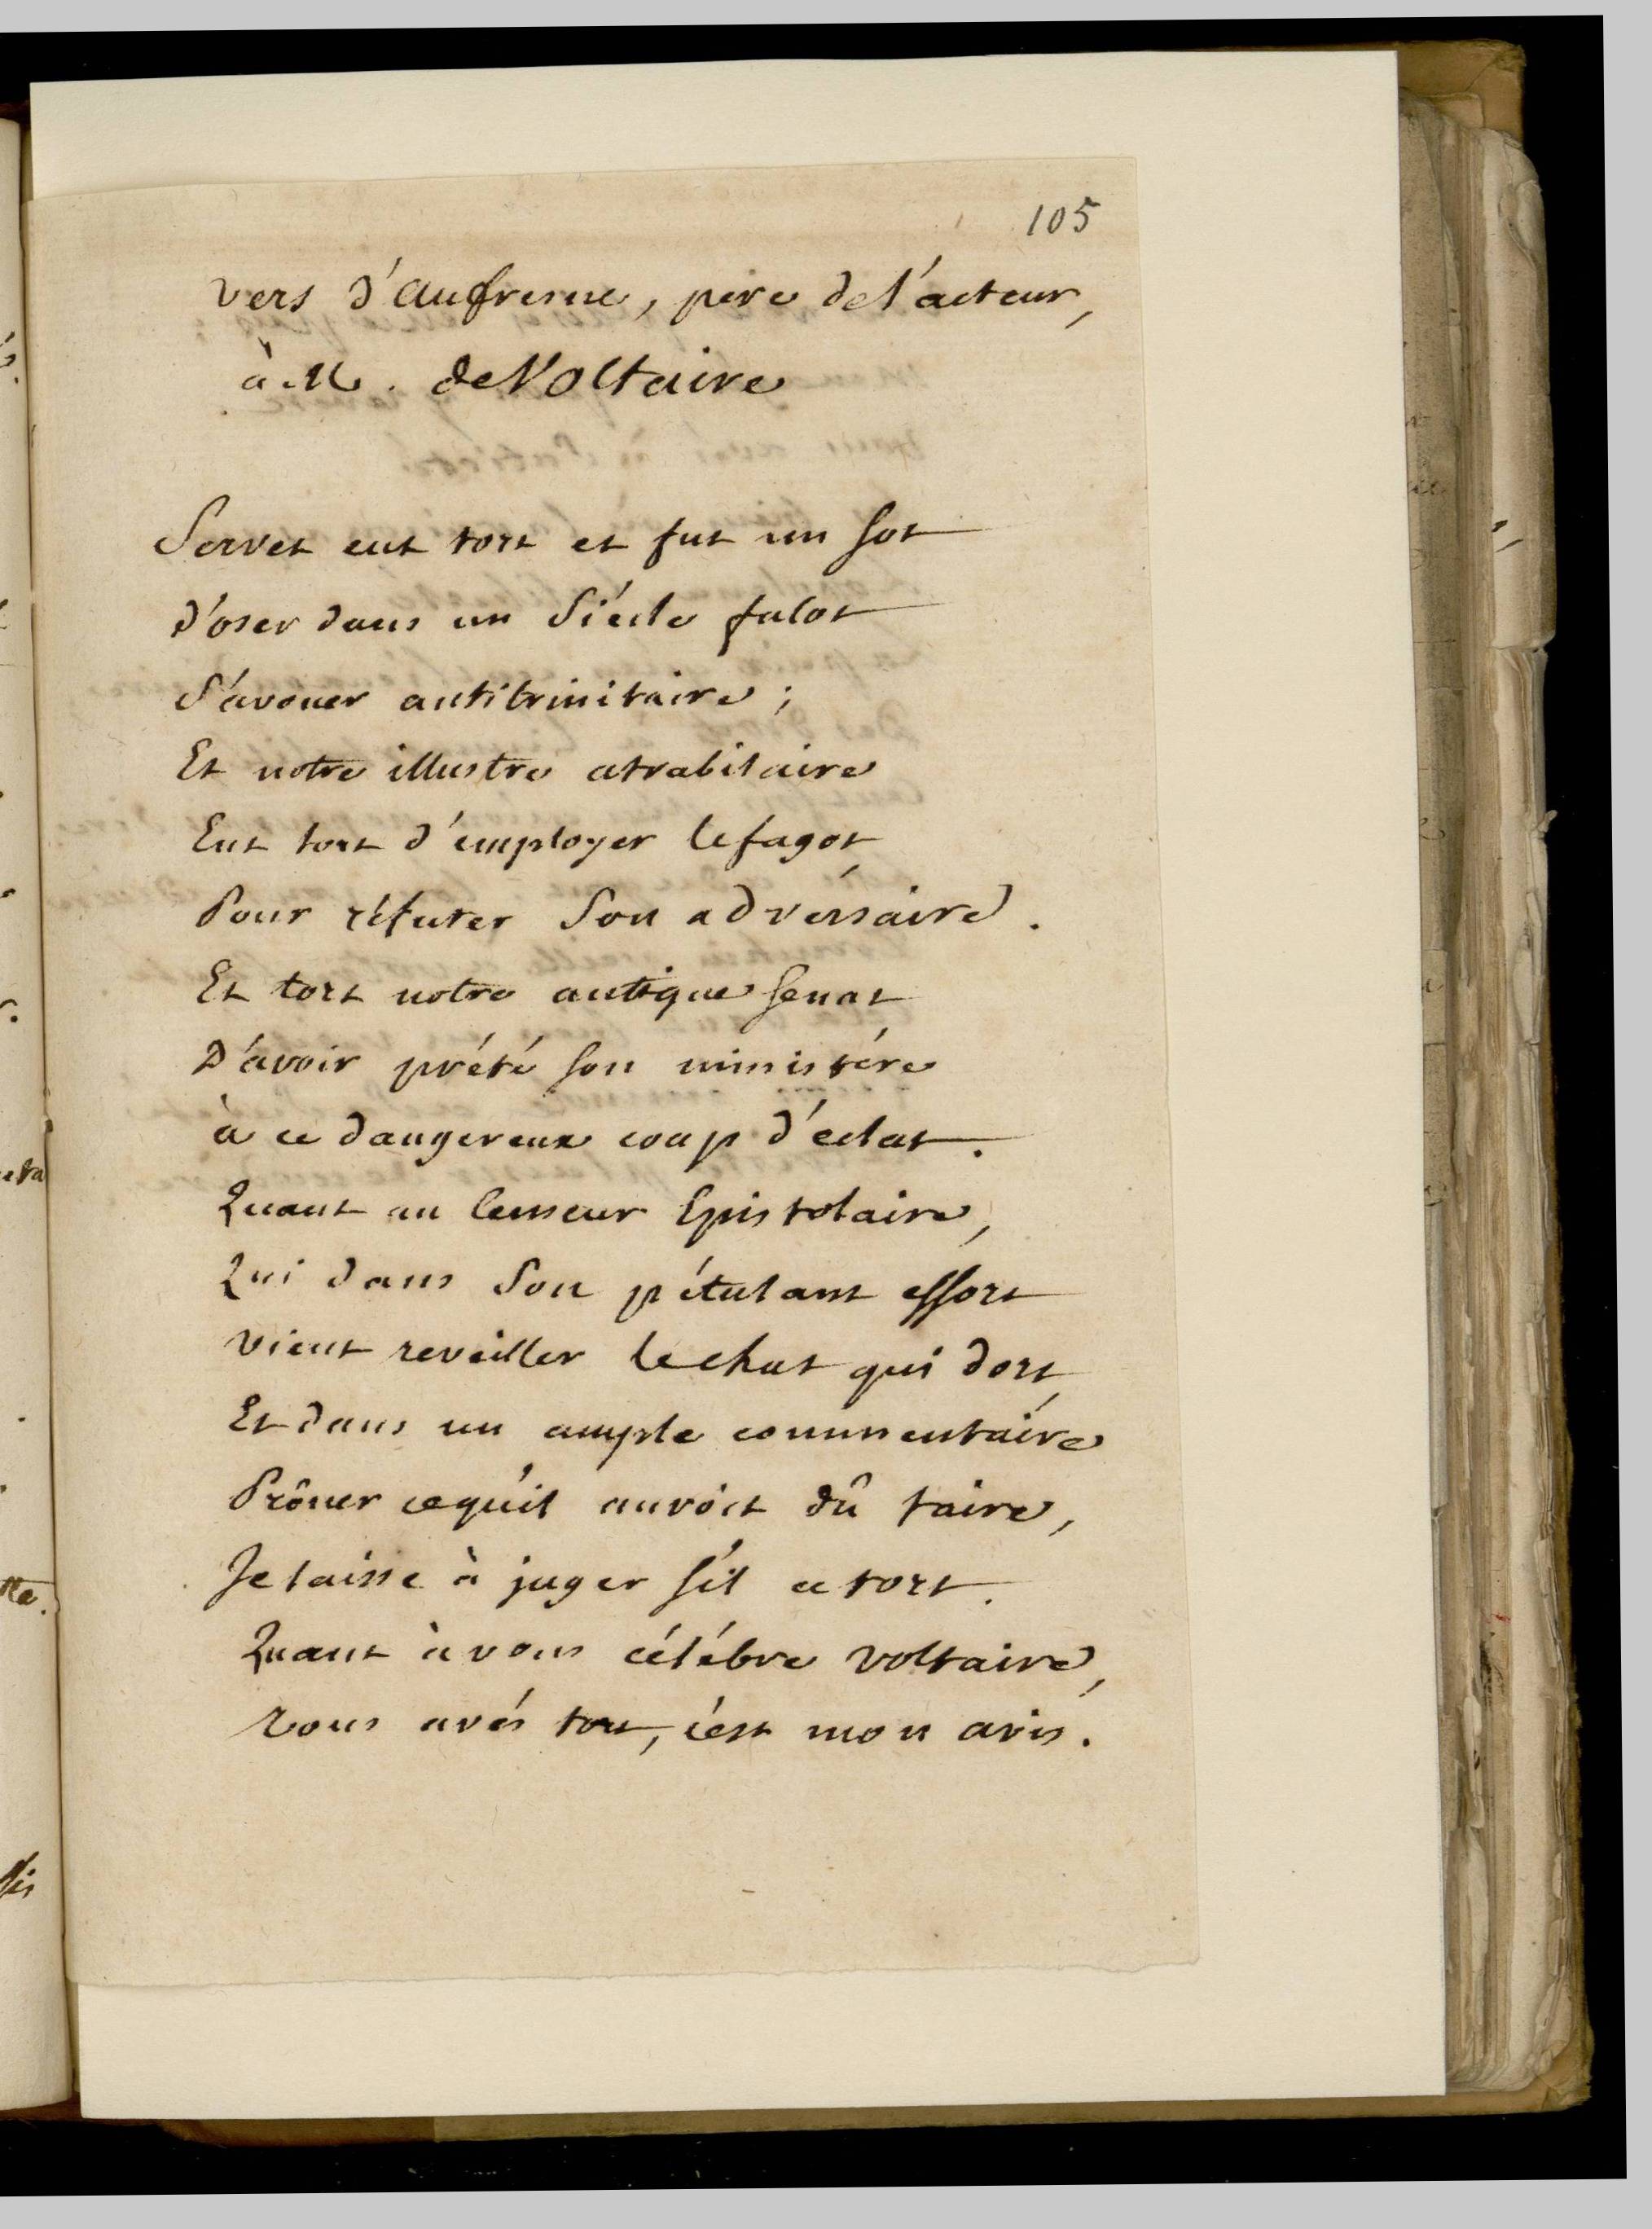 105
Vers d'Aufresne, pere de l'acteur,
à M. de Voltaire
Servet eut tort et fut un sot
D'oser dans un siécle falot
S'avouer antitrinitaire;
Et notre illustre atrabilaire
Eut tort d'employer le fagot
Pour réfuter son adversaire.
Et tort notre antique senat
D'avoir prété son ministére
à ce dangereux coup d'eclat.
Quant au Censeur Epistolaire,
Qui dans son pétulant effort
Vient reveiller le chat qui dort,
Et dans un ample commentaire
Prôner ce qu'il auroit dû taire,
Je laisse à juger s'il a tort.
Quant à vous célébre Voltaire,
Vous avés tort, c'est mon avis.